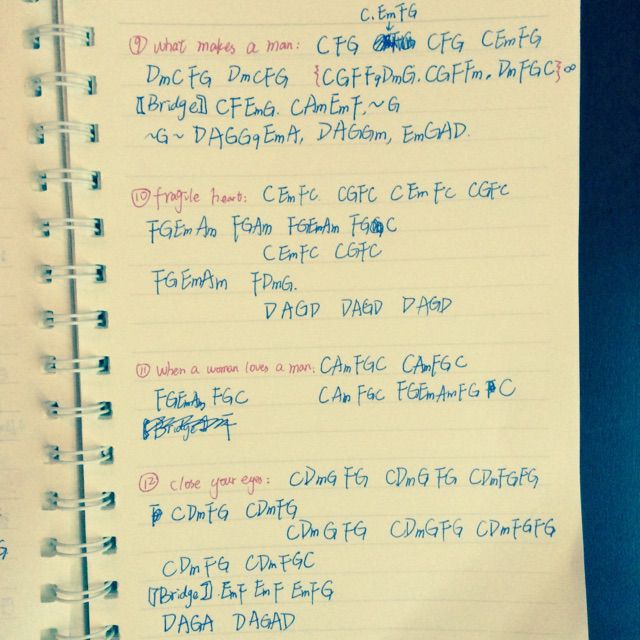 C.EmFG
↓
⑨ what makes a man: CFG CFG CEmFG
DmCFG DmCFG {CGFFqDmG. CGFFm. DmFGC}∞
【Bridge】 CFEmG. CAmEmF.~G
~G~ DAGGqEmA, DAGGm, EmGAD.
⑩ fragile heart: CEmFC CGFC CEmFC CGFC
FGEmAm FGAm FGEmAm FG C
CEmFC CGFC
FGEmAm FDmG.
DAGD DAGD DAGD
⑪ when a woman loves a man: CAmFGC CAmFGC
FGEmAm FGC CAmFGC FGEmAmFG C
【Bridge】F
⑫ close your eyes: CDmGFG CDmGFG CDmFGFG
CDmFG CDmFG
CDmGFG CDmGFG CDmFGFG
CDmFG CDmFGC
【Bridge】 EmF EmF EmFG
DAGA DAGAD
G